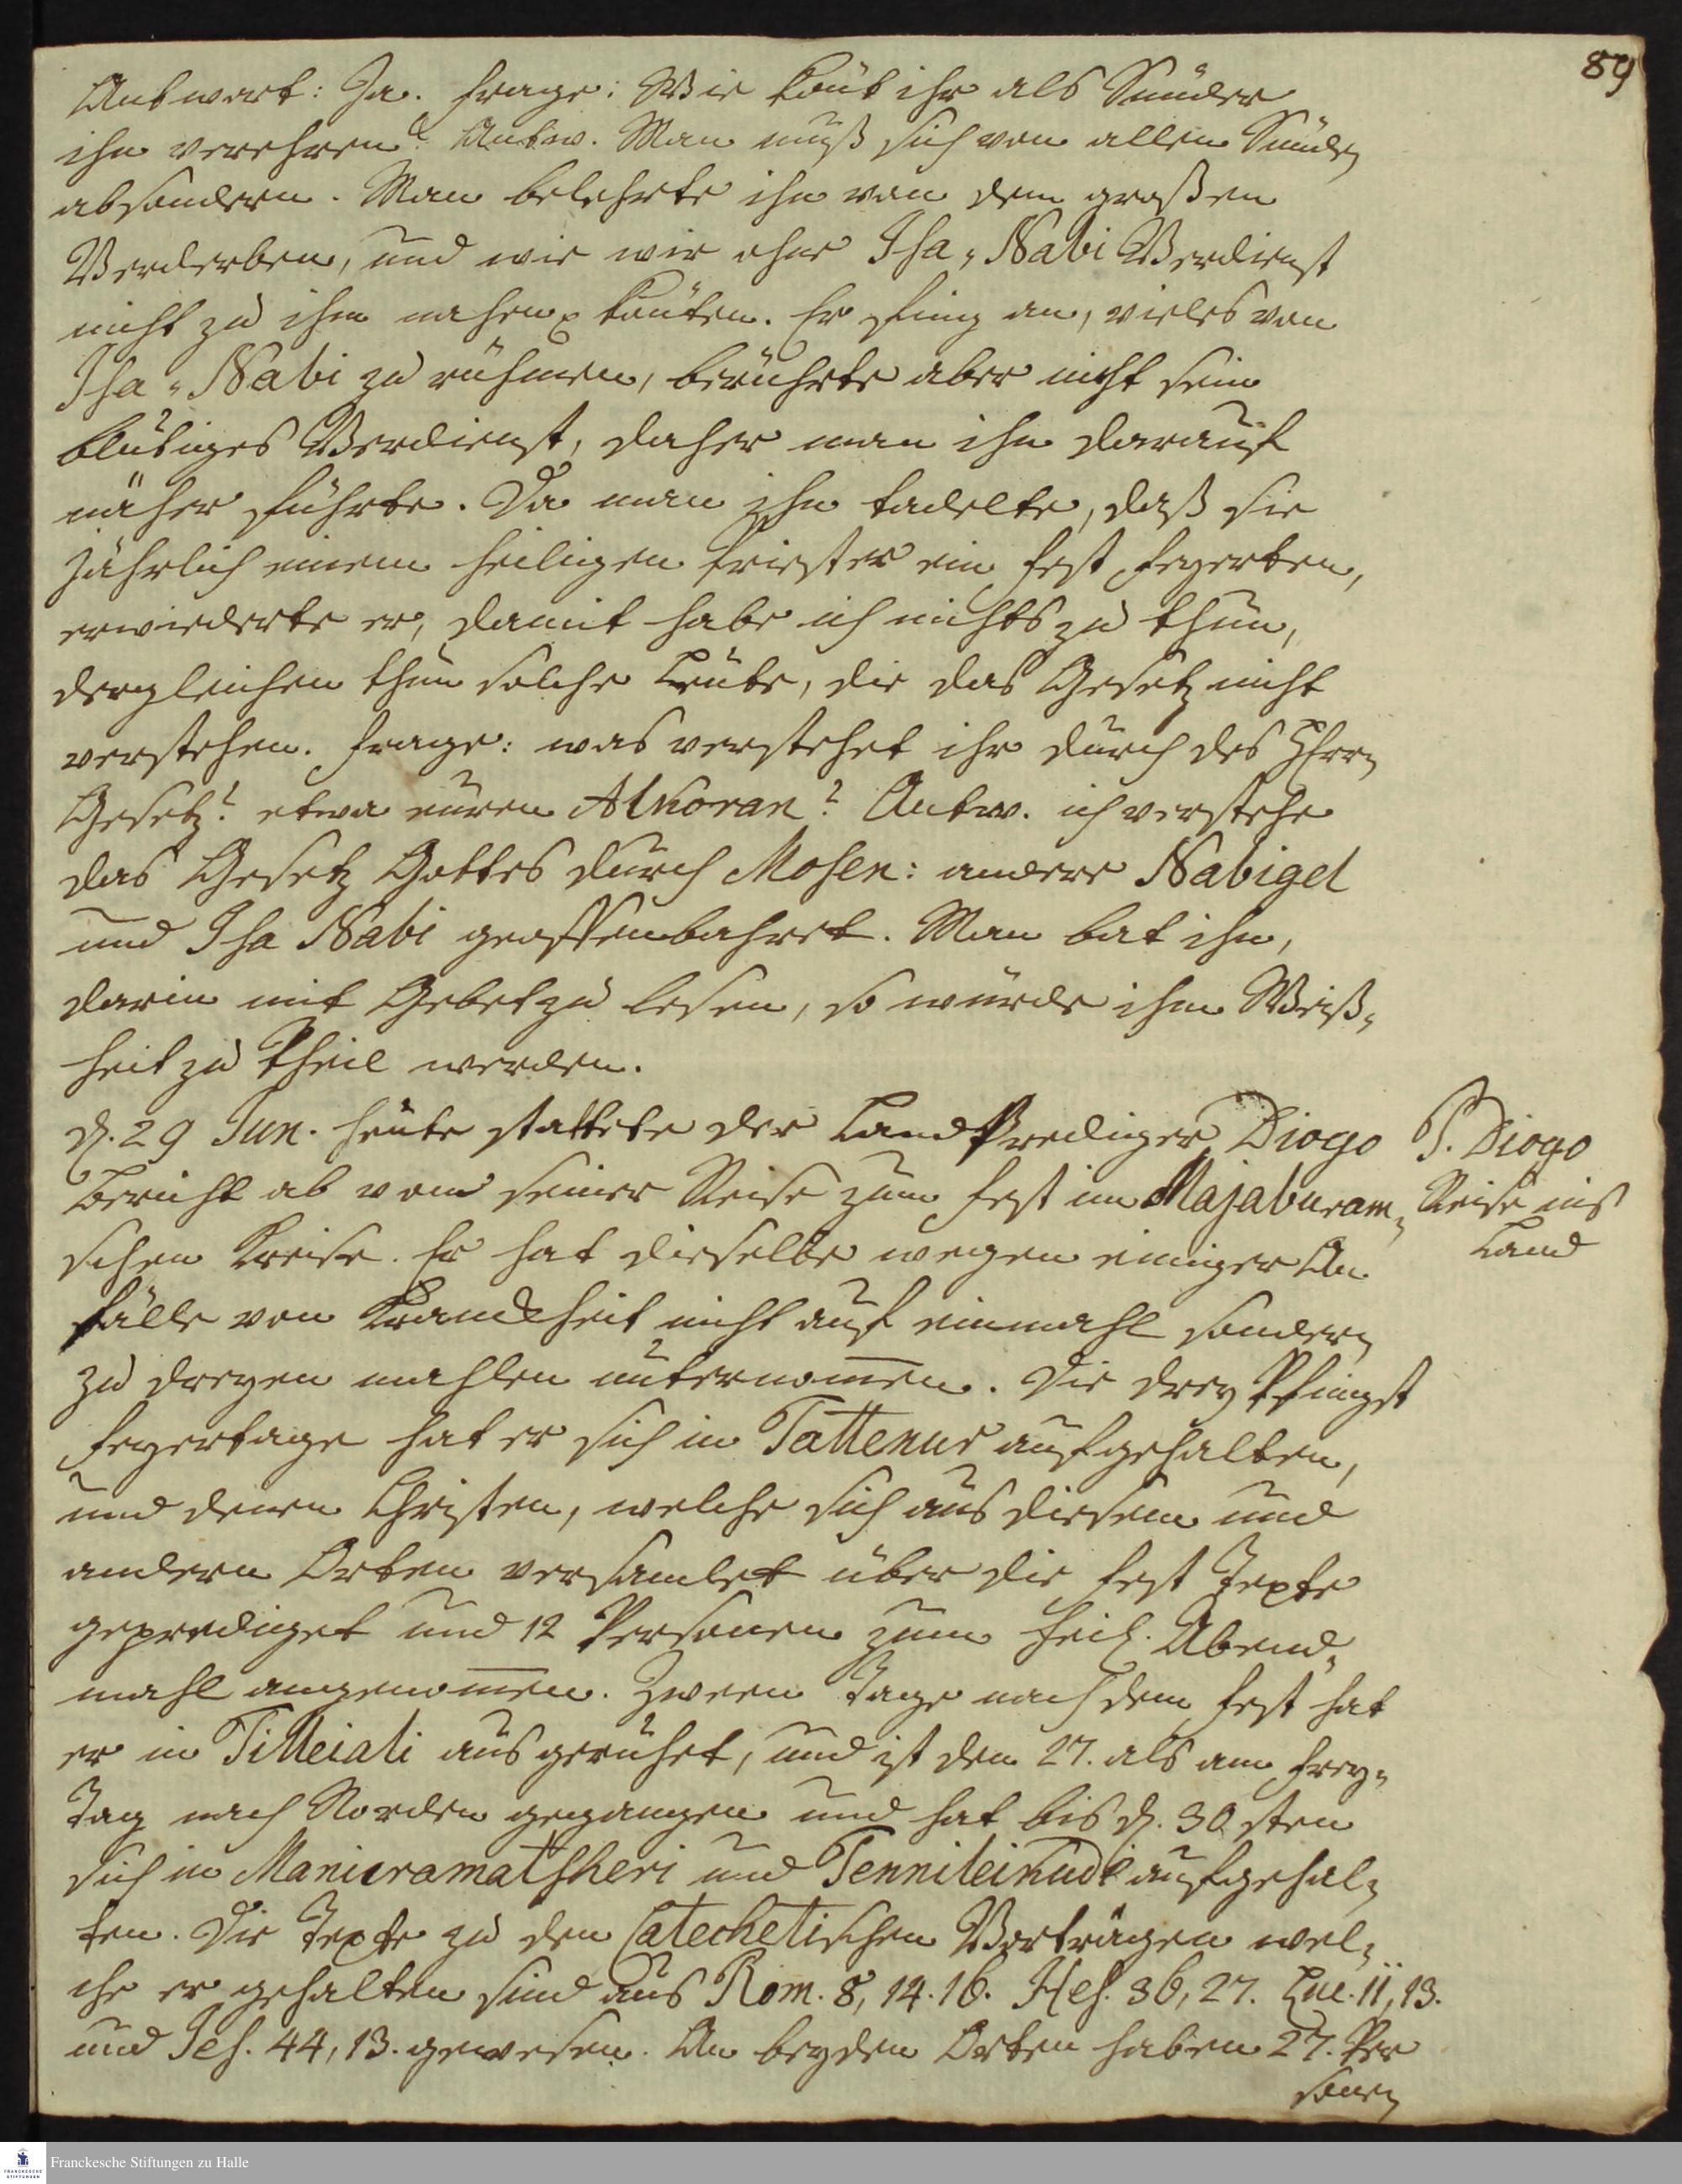 89
Antwort: Ja. Frage: Wie könt ihr als Sünder
ihn verehren? Antw. Man muß sich von allen Sünden
absondern. Man belehrte ihn von dem großen
Verderben, und wie wir ohne Isa-Nabi Verdienst
nicht zu ihm nahen könten. Er fing an, vieles von
Isa-Nabi zu rühmen, berührte aber nicht sein
blutiges Verdienst, daher man ihn darauf
näher führte. Da man ihn tadelte, daß sie
jährlich einem heiligen Priester ein Fest feyerten,
erwiederte er, damit habe ich nichts zu thun,
dergleichen thun solche Leute, die das Gesetz nicht
verstehen. Frage: was verstehet ihr durch des Herrn
Gesetz? etwa euren Alkoran? Antw. ich verstehe
das Gesetz Gottes durch Mosen: andere Nabigel
und Isa Nabi geoffenbahret. Man bat ihn,
darin mit Gebet zu lesen, so würde ihm Weiß-
heit zu Theil werden.
d. 29 Jun. Heute stattete der Land Prediger Diogo
Bericht ab von seiner Reise zum Fest im Majaburam-
schen Kreise. Er hat dieselbe wegen einiger An
fälle von Krankheit nicht auf einmahl sondern
zu dreyen mahlen unternom̄en. Die drey Pfingst
Feyertage hat er sich in Tattenur aufgehalten,
und denen Christen, welche sich aus diesem und
andern Orten versamlet über die Fest Texte
geprediget und 12 Personen zum heil. Abend-
mahl angenom̄en. Zween Tage nach dem Fest hat
er in Tilleiali ausgeruhet, und ist den 27. als am Frey-
Tag nach Norden gegangen und hat bis d. 30 sten
sich in Manicramatsheri und Tennileikudi aufgehal-
ten. Die Texte zu den Catechetischen Vorträgen wel-
che er gehalten sind aus Rom. 8, 14. 16. Hes. 36, 27. Luc. 11, 13.
und Jes. 44, 13. gewesen. An beyden Orten haben 27. Per
sonen
P. Diogo
Reise ins
Land
Franckesche Stiftungen zu Halle
FRANCKESCHE
STIFTUNGEN